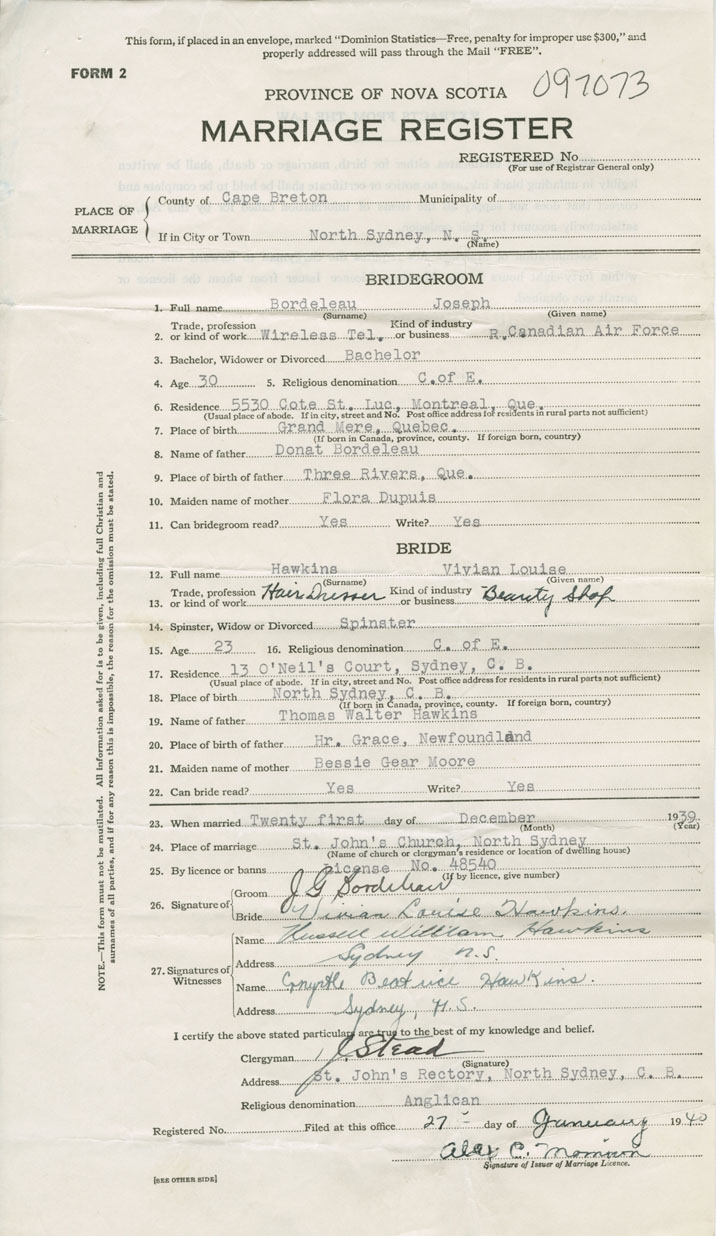 This form, if placed in an envelope, marked "Dominion Statistics—Free, penalty for improper use $300," and
properly addressed will pass through the Mail "FREE".
FORM 2
PROVINCE OF NOVA SCOTIA 097073
MARRIAGE REGISTER
REGISTERED No.
(For use of Registrar General only)
PLACE OF MARRIAGE
County of Cape Breton Municipality of
If in City or Town North Sydney, N. S.
(Name)
BRIDEGROOM
1. Full name Bordeleau Joseph
(Surname) (Given name)
Trade, profession Kind of industry
2. or kind of work Wireless Tel. or business R.Canadian Air Force
3. Bachelor, Widower or Divorced Bachelor
4. Age 30 5. Religious denomination C.of E.
6. Residence 5530 Cote St. Luc, Montreal, Que.
(Usual place of abode. If in city, street and No. Post office address for residents in rural parts not sufficient)
7. Place of birth Grand Mere, Quebec.
(If born in Canada, province, county. If foreign born, country)
8. Name of father Donat Bordeleau
9. Place of birth of father Three Rivers, Que.
10. Maiden name of mother Flora Dupuis
11. Can bridegroom read? Yes Write? Yes
BRIDE
12. Full name Hawkins Vivian Louise
(Surname) (Given name)
Trade, profession Hair Dresser Kind of industry Beauty Shop
13. or kind of work or business
14. Spinster, Widow or Divorced Spinster
15. Age 23 16. Religious denomination C. of E.
17. Residence 13 O'Neil's Court, Sydney, C. B.
(Usual place of abode. If in city, street and No. Post office address for residents in rural parts not sufficient)
18. Place of birth North Sydney, C. B.
(If born in Canada, province, county. If foreign born, country)
19. Name of father Thomas Walter Hawkins
20. Place of birth of father Hr. Grace, Newfoundland
21. Maiden name of mother Bessie Gear Moore
22. Can bride read? Yes Write? Yes
23. When married Twenty first day of December 1939.
(Month) (Year)
24. Place of marriage St. John's Church, North Sydney
(Name of church or clergyman's residence or location of dwelling house)
25. By licence or banns License No. 48540
(If by licence, give number)
26. Signature of Groom J G Bordeleau
Bride Vivian Louise Hawkins.
27. Signatures of Witnesses
Name Russell William Hawkins
Address Sydney N.S.
Name Myrtle Beatrice Hawkins.
Address Sydney, N.S.
I certify the above stated particulars are true to the best of my knowledge and belief.
Clergyman Stead
(Signature)
Address St. John's Rectory, North Sydney, C. B.
Religious denomination Anglican
Registered No. Filed at this office 27 - day of January 1940
Alex C. Morrison
Signature of Issuer of Marriage Licence.
[SEE OTHER SIDE]
NOTE.—This form must not be mutilated. All information asked for is to be given, including full Christian and
surnames of all parties, and if for any reason this is impossible, the reason for the omission must be stated.